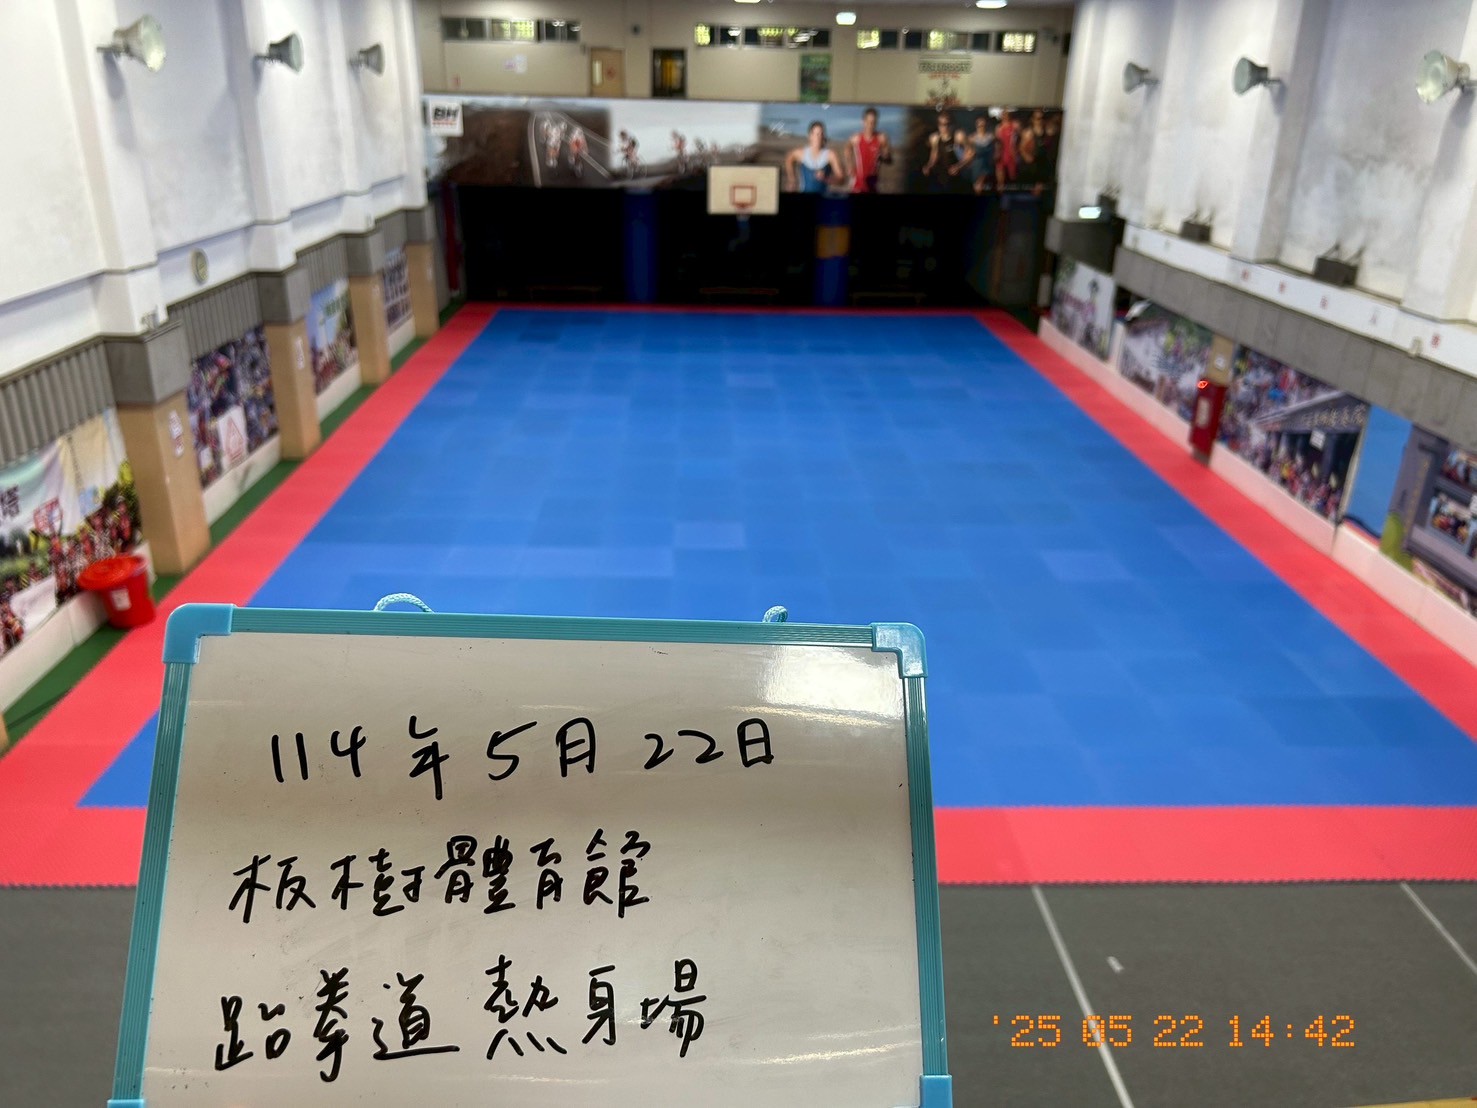 BH
114年5月22日
板樹體育館
跆拳道 熱身場
'25 05 22 14:42